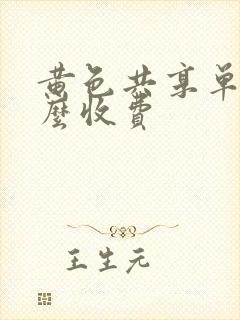 黄色共享单
麼收费
王生元